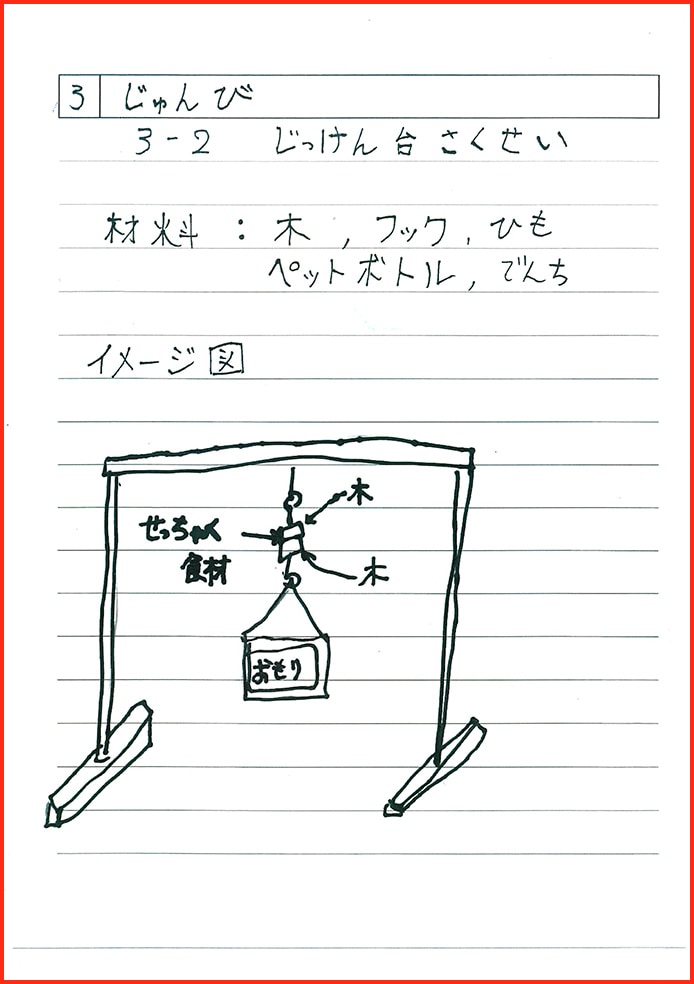 3 じゅんび
3-2 じっけん台さくせい
材料：木，フック，ひも
ペットボトル，でんち
イメージ図
木
せっちゃく
食材
木
おもり